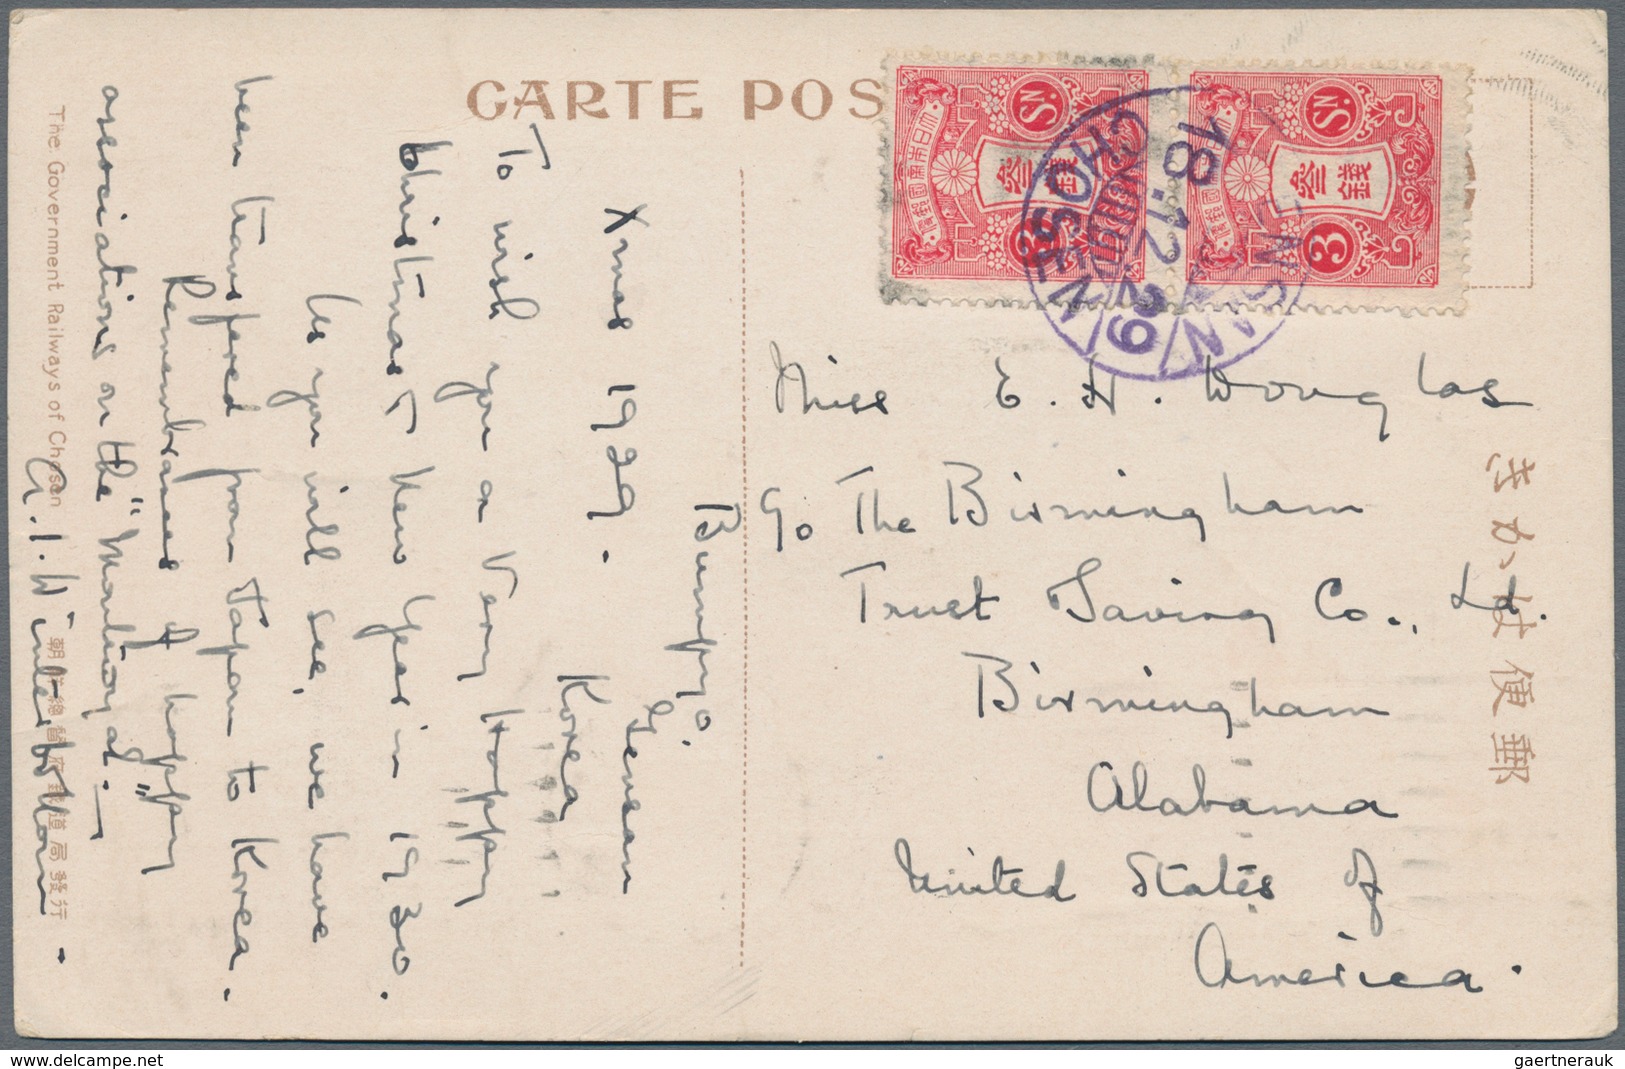 CARTE POS
Bumpyo.
Gensan
Korea
Xmas 1929.
To wish you a Very Happy
Christmas & New Year in 1930.
As you will see, we have
been transfered from Japan to Korea.
Remembrances of happy
associations on the "Montroyal" —
A. I. Winterbottom.
The Government Railways of Chosen
朝鮮總督府鐵道局發行
錢叁
SN.
3
錢叁
SN.
3
GENSAN
18.12.29
CHOSEN
Miss E. H. Douglas
c/o The Birmingham
Trust Saving Co., Ld.
Birmingham
Alabama
United States of
America.
郵便はかき
delcampe.net
gaertnerauk